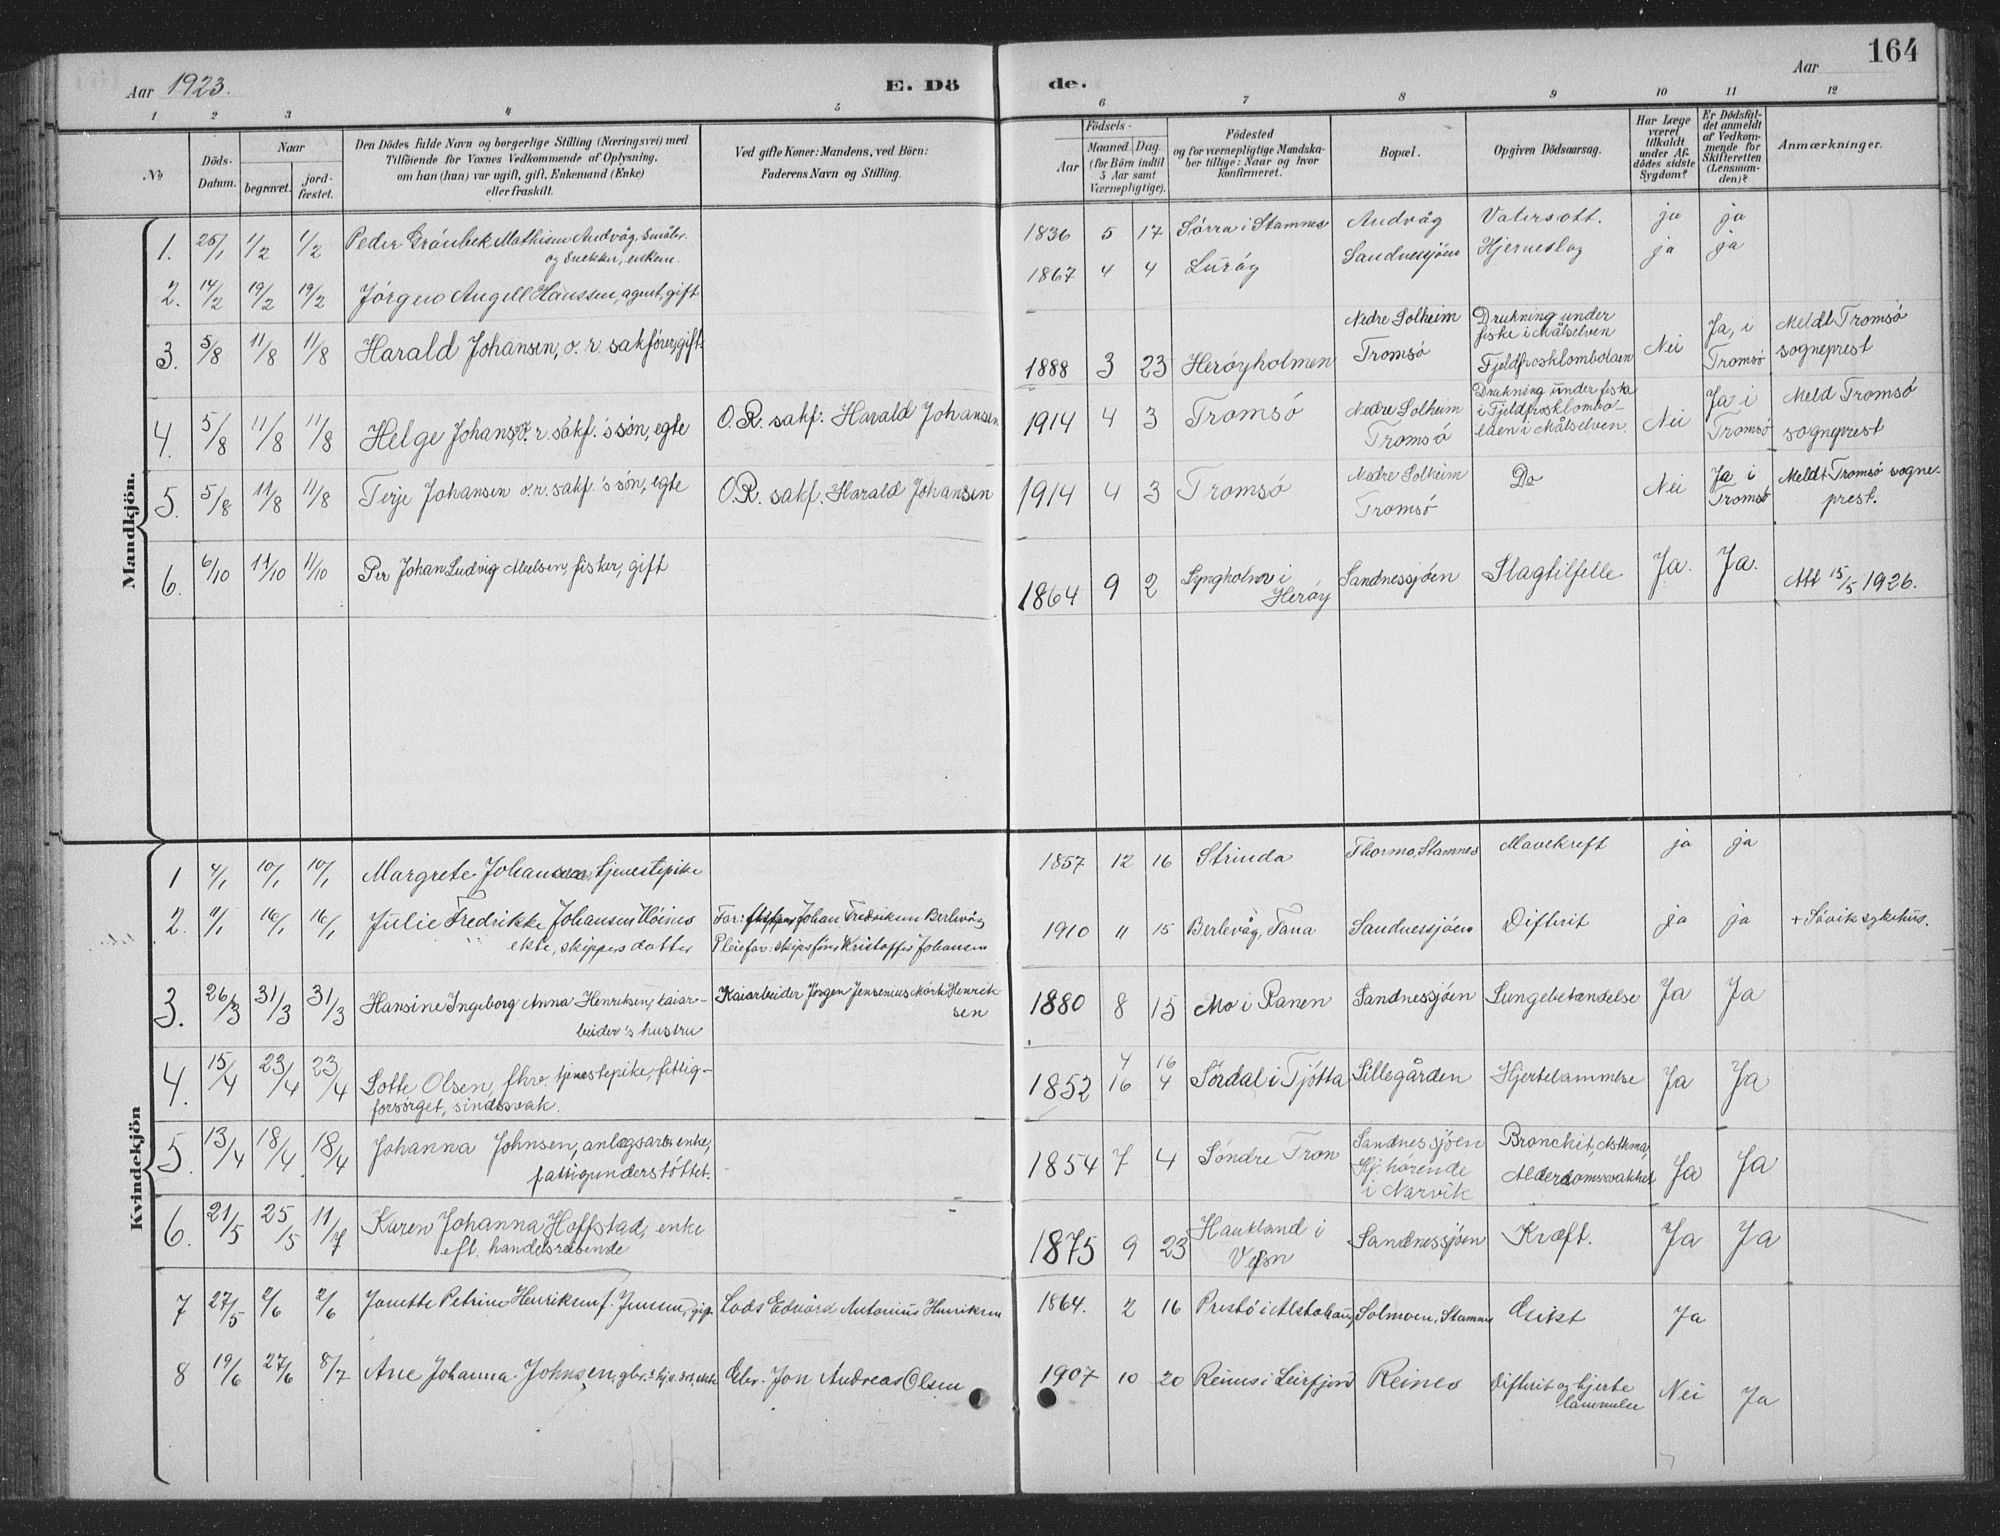 Aar 1923.
E. Dö
de.
Aar
164
1 2 3 4 5
6 7 8 9 10 11 12
No
Döds-
Datum.
Naar
begravet.
jord-
fæstet.
Den Dödes fulde Navn og borgerlige Stilling (Næringsvei) med
Tilföiende for Voxnes Vedkommende af Oplysning,
om han (hun) var ugift, gift, Enkemand (Enke)
eller fraskilt.
Ved gifte Koner: Mandens, ved Börn:
Faderens Navn og Stilling.
Födsels-
Aar
Maaned. Dag.
(for Börn indtil
5 Aar samt
Værnepligtige).
Födested
og for værnepligtige Mandska-
ber tillige: Naar og hvor
konfirmeret.
Bopæl.
Opgiven Dödsaarsag.
Har Læge
været
tilkaldt
under Af-
dödes sidste
Sygdom?
Er Dödsfal-
det anmeldt
af Vedkom-
mende for
Skifteretten
(Lensman-
den)?
Anmærkninger.
Mandkjön.
1. 25/1 1/2 1/2 Peder Grönbek Mathisen Andvåg, småbr.
og snekker, enkem.
1836 5 17 Sørra i Stamnes Andvåg Vatersott. ja ja
2. 14/2 19/2 19/2 Jörgen Angell Hanssen, agent, gift
1867 4 4 Luröy Sandnessjöen Hjerneslag ja ja
3. 5/8 11/8 11/8 Harald Johansen, o. r. sakförer, gift
1888 3 23 Heröyholmen
Nedre Solheim
Tromsö
Drukning under
fiske i Målselven
Fjeldfrosklombolaen
Nei
Ja, i
Tromsö
Meldt Tromsö
sogneprest
4. 5/8 11/8 11/8 Helge Johans, o. r. sakf.'s sön, egte
O. R. sakf: Harald Johansen
1914 4 3 Tromsö
Nedre Solheim
Tromsö
Drukning under fiske
i Fjeldfrosklombo-
laen i Målselven.
Nei
Ja i
Tromsö
Meld Tromsö
sogneprest
5. 5/8 11/8 11/8 Terje Johansen o. r. sakf.'s sön, egte
O. R. sakf: Harald Johansen
1914 4 3 Tromsö
Nedre Solheim
Tromsö
Do
Nei
Ja i
Tromsö
Meldt Tromsö sogne-
prest.
6. 6/10 11/10 11/10 Per Johan Ludvig Abelsen, fisker, gift
1864 9 2 Lyngholm i
Heröy
Sandnessjöen Slagtilfelle Ja. Ja. Att 15/5 1926.
Kvindekjön
1 4/1 10/1 10/1 Margrete Johansen, tjenestepike
1857 12 16 Strinda Thormo, Stamnes Mavekreft ja ja
2. 11/1 16/1 16/1 Julie Fredrikke Johansen Höines
ekte, skippers datter
Far: Johan Fredriksen Berlevåg
Pleiefar: skipsförer Kristoffer Johansen
1910 11 15 Berlevåg, Tana Sandnessjöen Difterit ja ja + Sövik sykehus.
3. 26/3 31/3 31/3 Hansine Ingeborg Anna Henriksen, kaiar-
beider's hustru
Kaiarbeider Jörgen Jensenius Mörk Henrik-
sen
1880 8 15 Mo i Ranen Sandnessjöen Lungebetændelse Ja Ja
4. 15/4 23/4 23/4 Lotte Olsen, fhv. tjenestepike, fattig-
forsörget, sindssvak.
4 16
1852 16 4 Sördal i Tjötta Lillegården Hjertelammelse Ja Ja
5. 13/4 18/4 18/4 Johanna Johnsen, anlægsarb. enke,
fattigunderstöttet.
1854 7 4 Söndre Tron
Sandnessjöen
Hj. hörende
i Narvik
Bronchit, Asthma,
Alderdomssvakhet
Ja Ja
6. 21/5 25/5 11/7 Karen Johanna Hoffstad, enke
eft. handelsreisende
1875 9 23 Haukland i
Vefsn
Sandnessjöen Kræft. Ja Ja
7 27/5 2/6 2/6 Jonette Petrine Henriksen f. Jensen, gift
Lods Edvard Antonius Henriksen
1864. 2 16 Prestö i Alstahaug Solmoen, Stamnes Ja
8 19/6 27/6 8/7 Ane Johanna Johnsen, gbr.s ekte
Gbr. Jon Andreas Olsen
1907 10 20 Reines i Leirfjord Reines
Difterit og hjerte
lammelse
Nei Ja